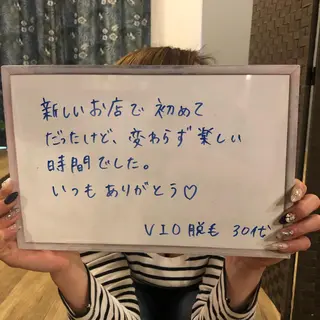 新しいお店で初めて
だったけど、変わらず楽しい
時間でした。
いつもありがとう♡
VIO脱毛 30代